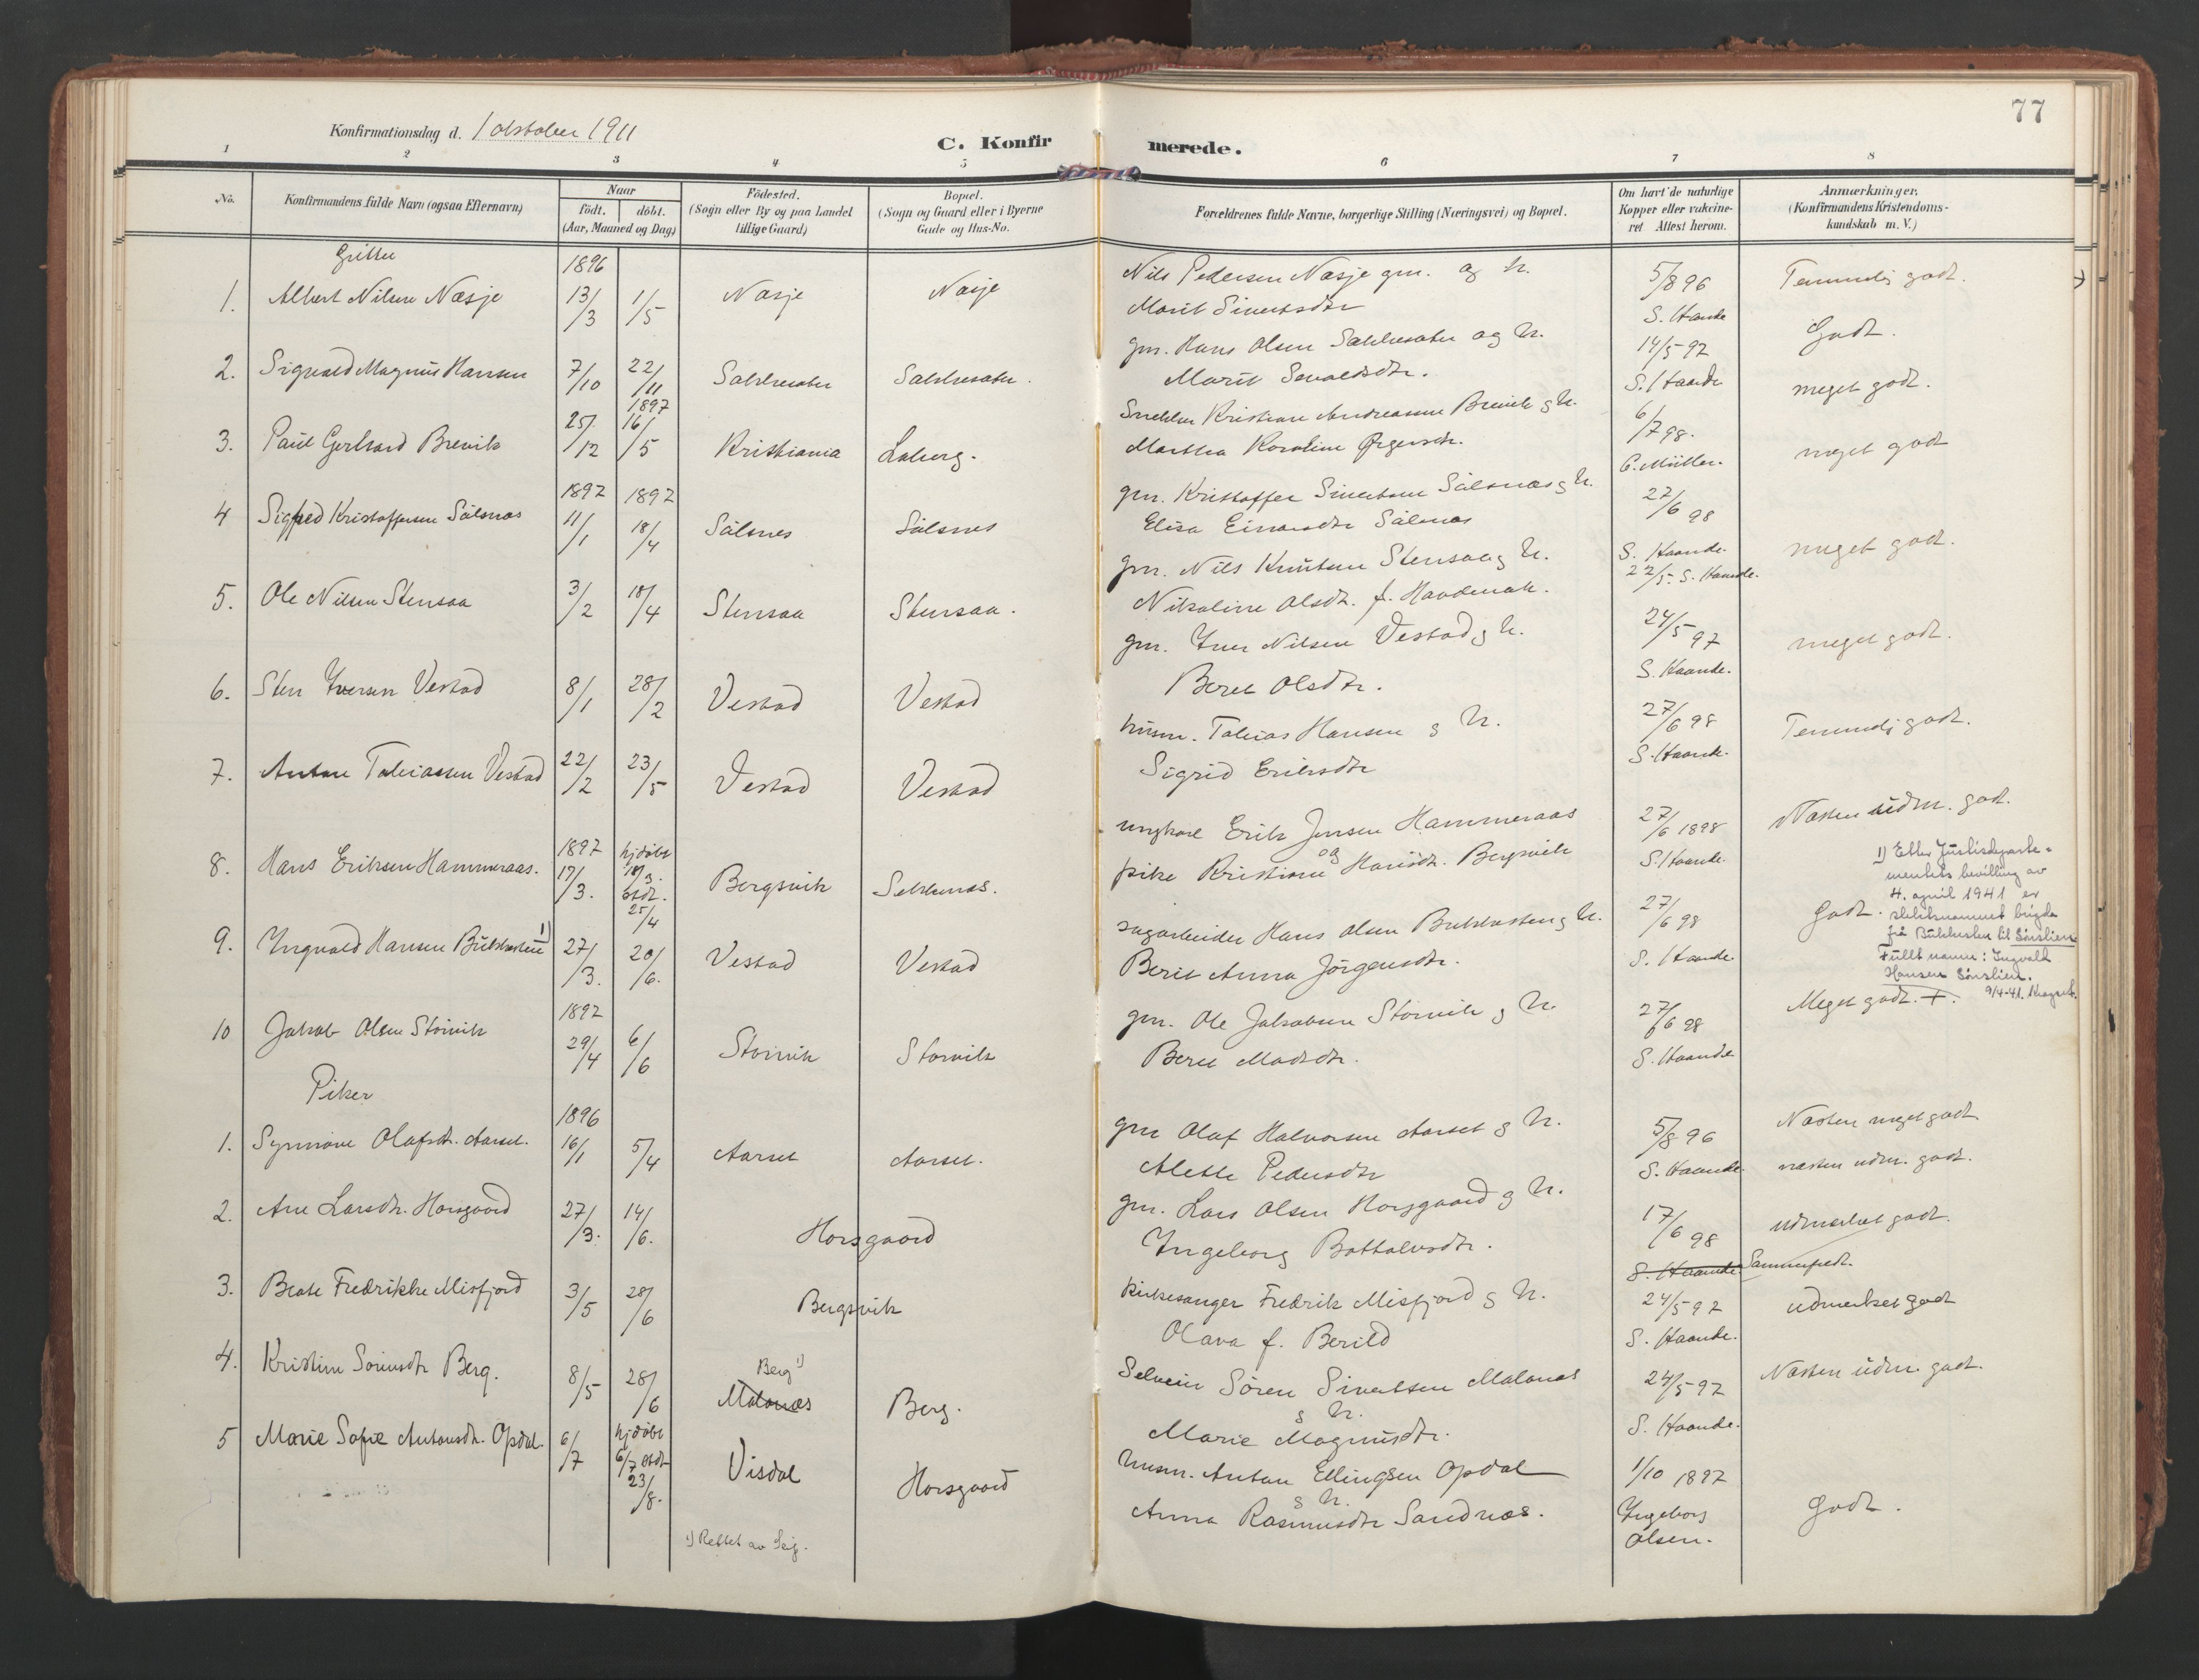 77
Konfirmationsdag d. 1 oktober 1911
C. Konfirmerede.
1 2 3 4 5 6 7 8
No.
Konfirmandens fulde Navn (ogsaa Efternavn)
Naar
födt. döbt.
(Aar, Maaned og Dag)
Födested.
(Sogn eller By og paa Landet
tillige Gaard)
Bopæl.
(Sogn og Gaard eller i Byerne
Gade og Hus-No.
Forældrenes fulde Navne, borgerlige Stilling (Næringsvei) og Bopæl.
Om havt de naturlige
Kopper eller vakcine-
ret Attest herom.
Anmærkninger.
(Konfirmandens Kristendoms-
kundskab m. V.)
Gutter
1. Albert Nilsen Næsje 1896 13/3 1/5 Næsje Næsje Nils Pedersen Næsje gm. og h. Marit Sivertsdtr 5/8 96 S. Haande Temmelig godt.
2. Sigvald Magnus Hansen 7/10 22/11 gm. Hans Olsen og h. Marit Sevaldsdtr. 14/5 97 S. Haande Godt.
3. Paul Gerhard Brevik 25/12 1897 16/5 Kristiania Snekker Kristian Andreassen Brevik g h. Martha Karoline 6/7 98. C. Müller. meget godt.
4 Sigfred Kristoffersen Sålsnæs 1897 11/1 1897 18/4 Sålsnes Sålsnes gm. Kristoffer Sivertsen Sålsnæs g h. Elisa Einarsdtr Sålsnæs 27/6 98 S. Haande. meget godt
5. Ole Nilsen Stensaa 3/2 18/4 Stensaa Stensaa. gm. Nils Knutsen Stensaa g h. Nikoline Olsdtr. f. 22/5. S. Haande. meget godt.
6. Sten Iversen Vestad 8/1 28/2 Vestad Vestad gm. Iver Nilsen Vestad g h. Beret Olsdtr. 24/5 97 S. Haande. meget godt.
7. Anton Tobiassen Vestad 22/2 23/5 Vestad Vestad husm. Tobias Hansen g h. Sigrid Eriksdtr 27/6 98 S. Haande. Temmelig godt.
8. Hans Eriksen Hammeraas. 1897 17/3. hjdöbt 18/3. stdf. 25/4 Bergsvik ungkarl Erik Jensen Hammeraas og pike Kristine Hansdtr. Bergsvik 27/6 1898 S. Haande. Næsten udm. godt.
9. Yngvald Hansen Bukkesten 1) 27/3. 20/6. Vestad Vestad sagarbeider Hans Olsen Bukkesten g h. Berit Anna Jörgensdtr. 27/6 98 S. Haande. godt.
1) Etter Justisdeparte-
mentets bevilling av
4. april 1941 er
slektsnamnet brigda
frå Bukkesten til Sørslien
Fullt namn: Ingvald
Hansen Sørslien.
9/4-41.
10 Jakob Olsen Storvik 1897 29/4 6/6 Storvik Storvik gm. Ole Jakobsen Storvik g h. Beret Madsdtr. 27/6 98 S. Haande Meget godt. +.
Piker
1. Synnöve Olafsdtr. Aarset. 1896 16/1 5/4 Aarset Aarset. gm Olaf Halvorsen Aarset g h. Alette Pedersdtr 5/8 96 S. Haande. Næsten meget godt
2. Ane Larsdtr. Horsgaard 27/3. 14/6. Horsgaard gm. Lars Olsen Horsgaard g h. Ingeborg Bottolvsdtr. 17/6 98 S. Haande. næsten udm. godt.
3. Beate Fredrikke Misfjord 3/5 28/6 Bergsvik Kirkesanger Fredrik Misfjord g h. Olava f. Berild 24/5 97 S. Haande. udmerket godt.
4. Kristine Sörensdtr Berg. 8/5 28/6 Berg 1) Malonæs Berg. Selveier Sören Sivertsen Malonæs g h. Marie Magnusdtr. 24/5 97 S. Haande. udmerket godt
5 Marie Sofie Antonsdtr. Opdal. 6/7 hjdöbt 6/7 stdf 23/8. Visdal Horsgaard husm. Anton Ellingsen Opdal g h. Anna Rasmusdtr Sandnæs. 1/10 1897 Ingeborg Olsen. Næsten udm. godt.
Godt.
1) Rettet av